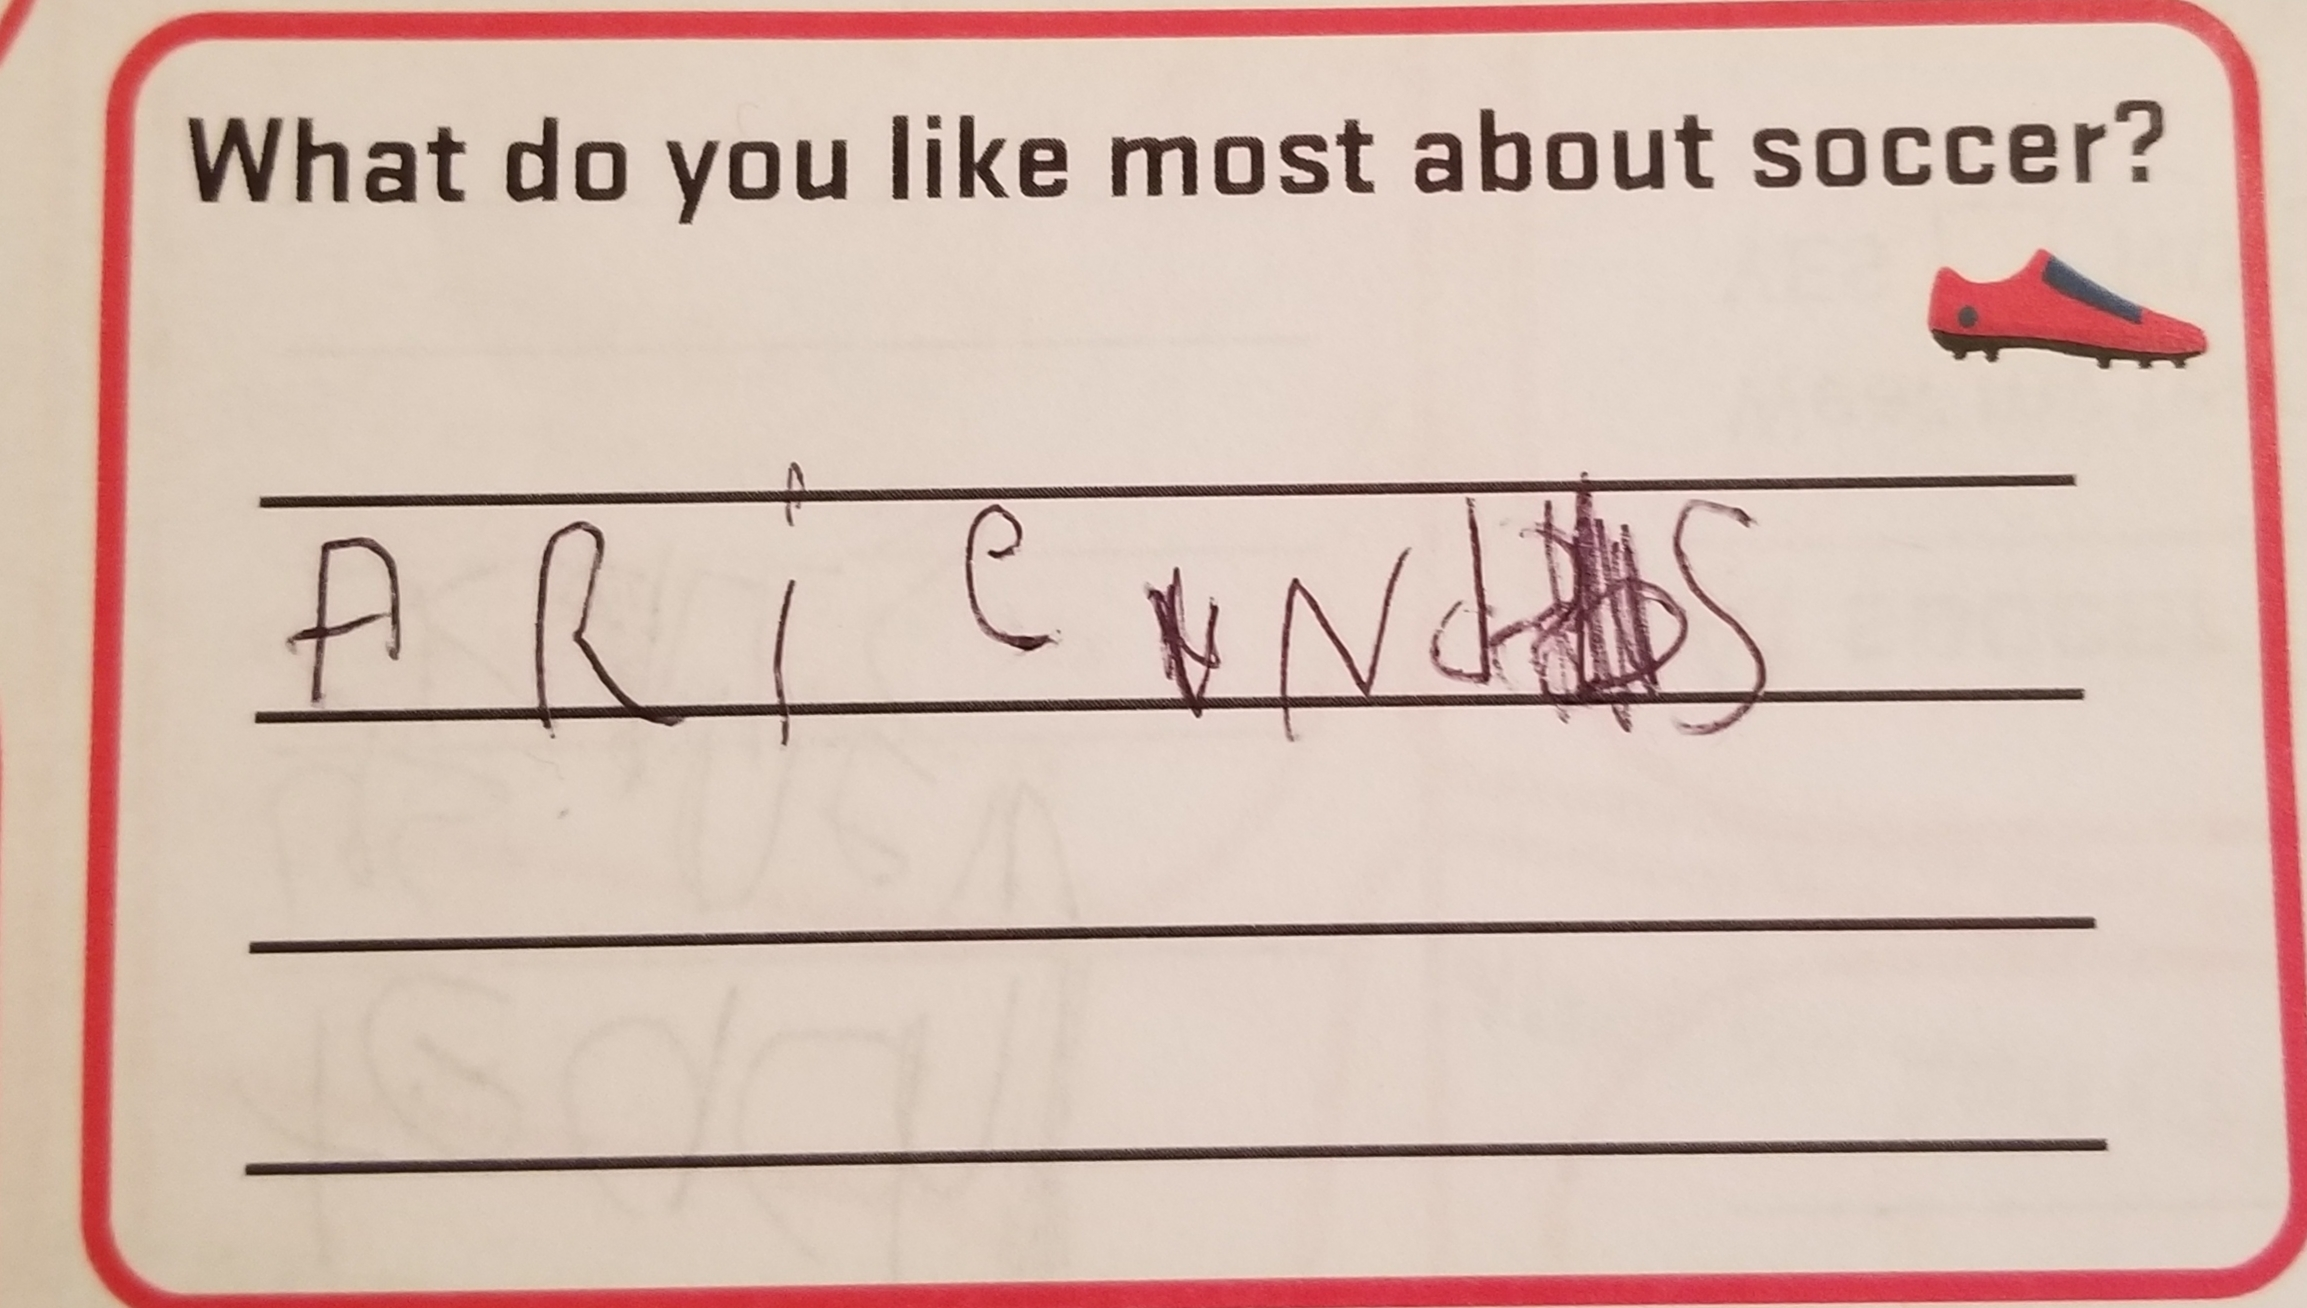 What do you like most about soccer?
A R i e N d S